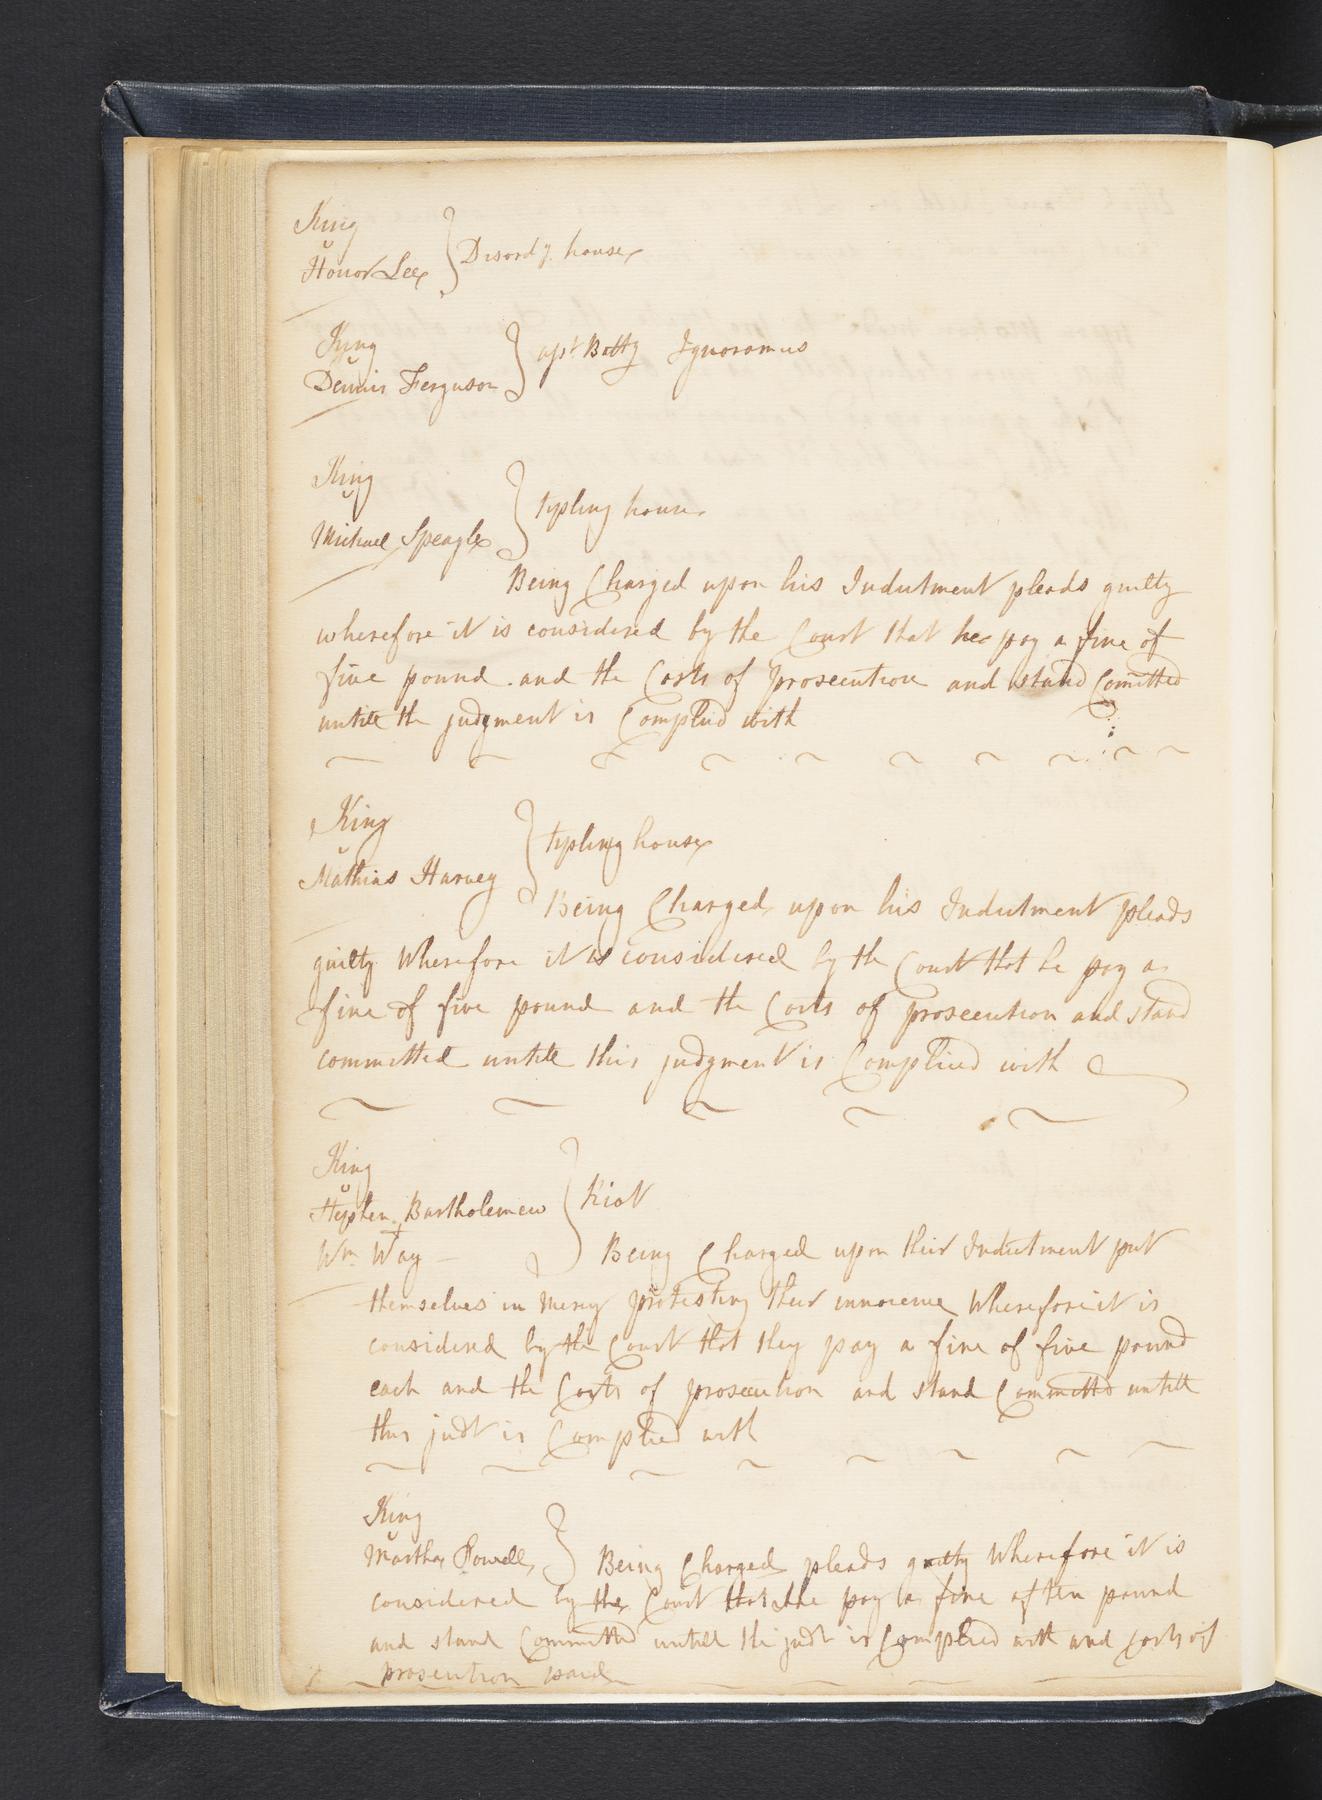 King
v
Honor Lee } Disordy. house
King
v
Dennis Ferguson } asst. Batty Ignoramus
King
v
Michael Speagle } tipling house
Being Charged upon his Indictment pleads guilty
wherefore it is considered by the Court that hee pay a fine of
five pound and the Costs of prosecution and stand Comitted
untill the judgment is Complied with
King
v
Mathias Harvey } tipling house
Being Charged upon his Indictment pleads
guilty Wherefore it is considered by the Court that he pay a
fine of five pound and the Costs of prosecution and stand
committed untill this judgment is Complied with
King
v
Stephen Bartholemew } Riot
Wm. Way
Being Charged upon their Indictment put
themselves in Mercy protesting their innocence Wherefore it is
considered by the Court that they pay a fine of five pound
each and the Costs of prosecution and stand Committed untill
this judt is Complied with
King
v
Martha Powell } Being Charged pleads guilty Wherefore it is
considered by the Court that she pay a fine of ten pound
and stand Committed untill the judt is Complied with and Costs of
prosecution paid